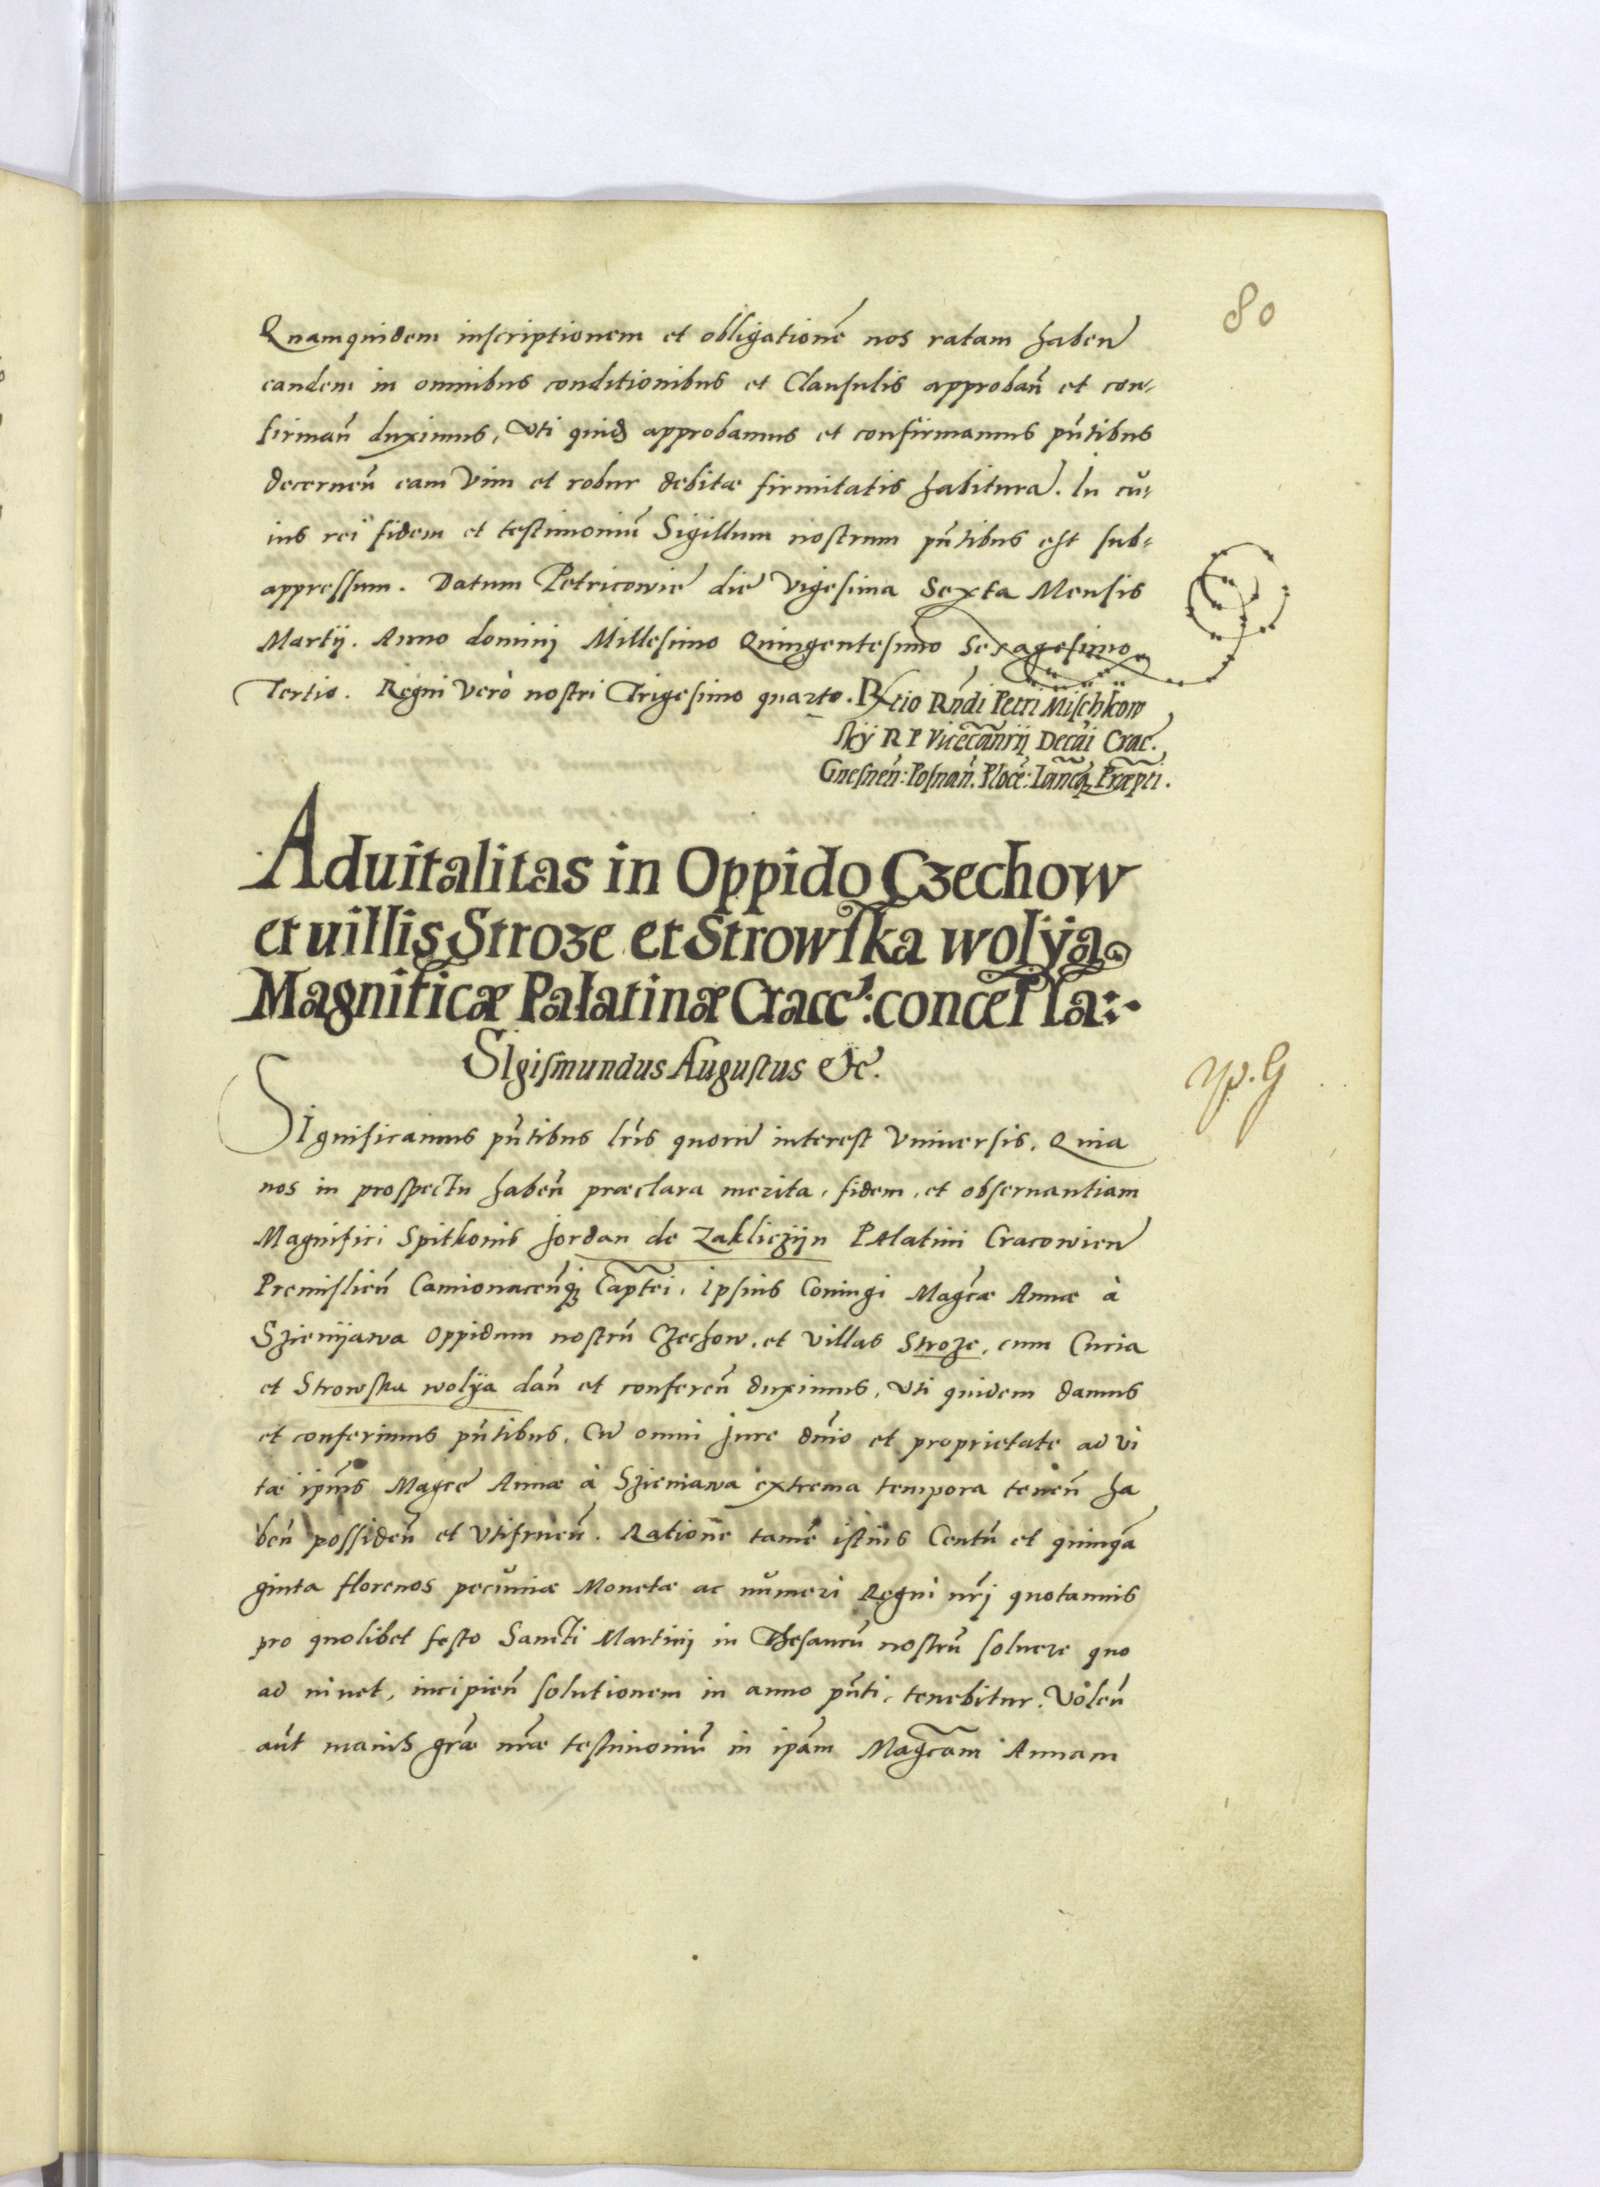 80
Quamquidem inscriptionem et obligationē nos ratam haben̄
eandem in omnibus conditionibus et Clausulis approban̄ et con-
firman̄ duximus, Vti quid approbamus et confirmamus pn̄tibus
decernen̄ eam Vim et robur debitæ firmitatis habitura. In cu-
ius rei fidem et testimoniū Sigillum nostrum pn̄tibus est sub-
appressum. Datum Petricowie die Vigesima Sexta Mensis
Martij. Anno dominj Millesimo Quingentesimo Sexagesimo
Tertio. Regni Verò nostri Trigesimo quarto. Rtio Rn̄di Petri Mischkow
skÿ R P Vicecān̄rij Decāi Crac.
Gnesnen̄: Posnan̄. Plocē: Præpti.
Aduitalitas in Oppido Czechow
et uillis Stroze et Strowska wolÿa
Magnificæ Palatinæ Cracc: concessa:
SIgismundus Augustus &c.
SIgnificamus pn̄tibus lrīs quorū interest Vniuersis. Quia
nos in prospectu haben̄ præclara merita, fidem, et obseruantiam
Magnifici Spitkonis Jordan de Zakliczijn Palatini Cracowien̄
Premislien̄ Camionacen̄q Captei, Ipsius Coniugi Magcæ Annæ à
Szienijawa Oppidum nostrū Czechow, et Villas Stroze, cum Curia
et Strowska wolÿa dan̄ et conferen̄ duximus, Vti quidem damus
et conferimus pn̄tibus, Cū omni Jure dn̄io et proprietate ad vi
tæ ipīus Magcē Annæ à Szieniawa extrema tempora tenen̄ ha
ben̄ possiden̄ et Vtifruen̄. Ratione tamē istius Centū et quinqā
ginta florenos pecuniæ Monetæ ac numeri Regni nrī quotannis
pro quolibet festo Sancti Martini in Thesaurū nostrū soluere quo
ad uiuet, incipien̄ solutionem in anno pn̄ti, tenebitur. Volen̄
aūt maius grā nr̄æ testimoniū in ipām Magcām Annam